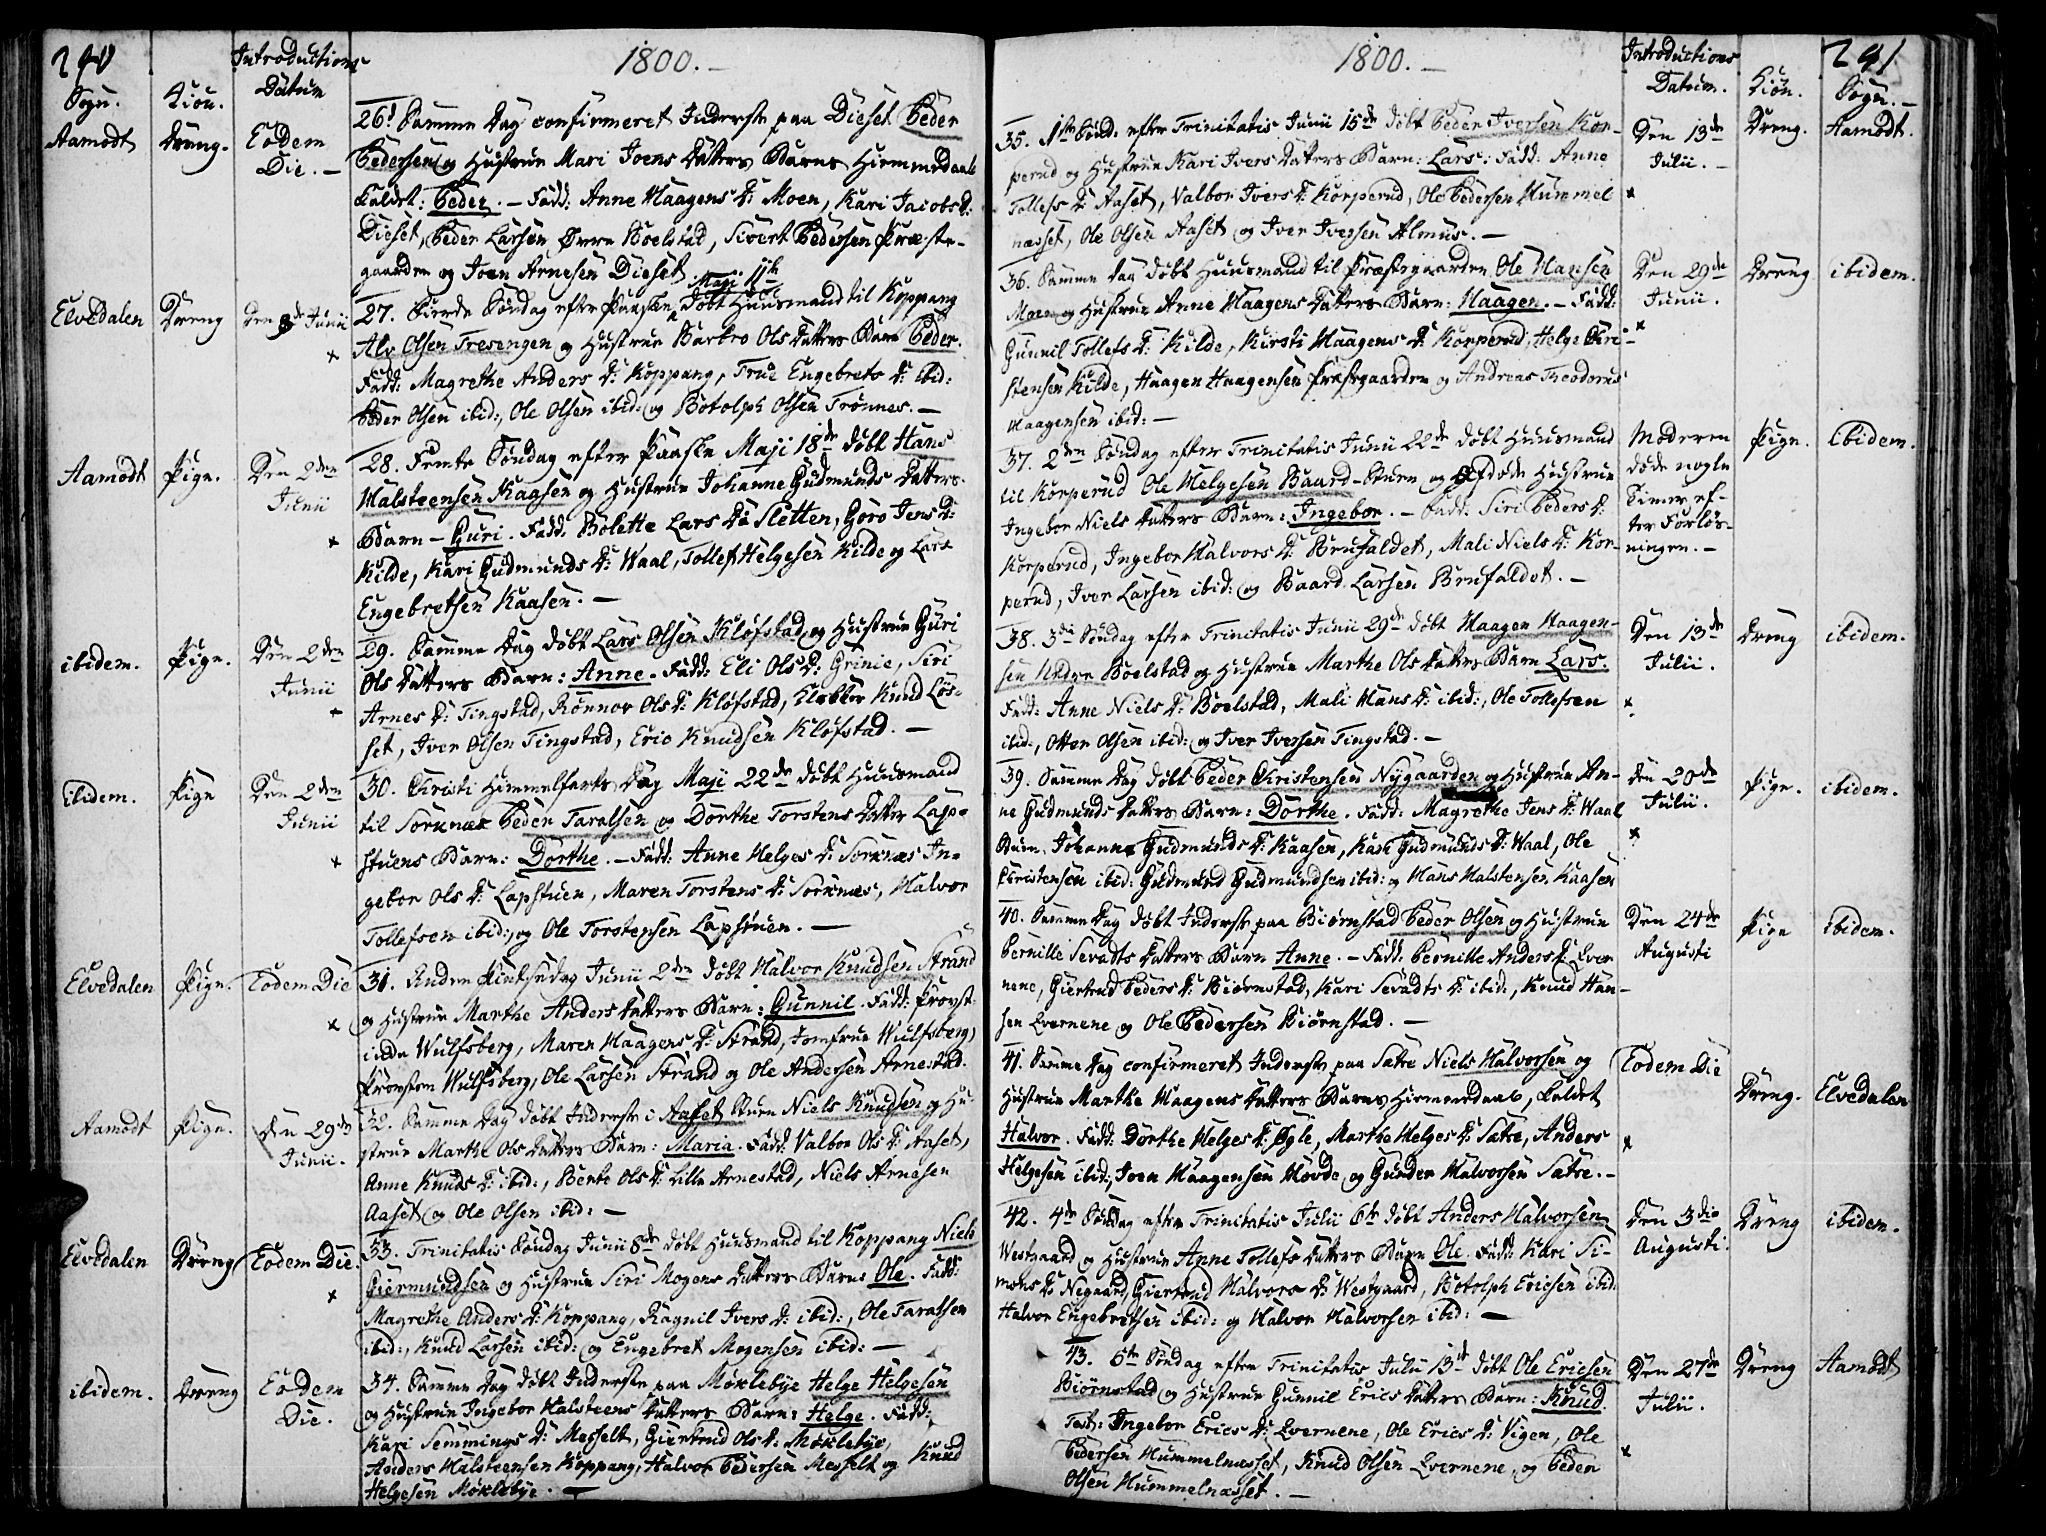 240
Introductions
Datum
Sogn. Kiön.
1800.—
Aamodt Dreng. Eodem Die.—
26! Samme Dag confirmeret Inderste paa Dieset Peder
Pedersen og Hustrue Mari Joens Datters Barns Hiemmedaab
kaldet: Peder.— Fadd: Anne Haagens D: Moen, Kari Jacobs D:
Dieset, Peder Larsen Øvre Boelstad, Sivert Pedersen Præste-
gaarden og Joen Arnesen Dieset
Maji 11te
Elvedalen Dreng Den 8de Junii x
27. Fierde Söndag efter Paaske, döbt Huusmand til Koppang
Alv Olsen Tresengen og Hustrue Barbro Ols Datters Barn Peder.
Fadd: Magrethe Anders D: Koppang, True Engebrets D: ibid:
Peder Olsen ibid:, Ole Olsen ibid: og Botolph Olsen Trønnes.—
Aamodt Pige. Den 2den Junii x
28. Femte Söndag efter Paaske Maji 18de döbt Hans
Halsteensen Kaasen og Hustrue Johanne Gudmunds Datters
Barn — Guri. Fadd: Bolette Lars D: Sletten, Goro Jens D:
Kilde, Kari Gudmunds D: Waal, Tollef Helgesen Kilde og Lars
Engebretsen Kaasen.—
ibidem. Pige. Den 2den Junii
29. Samme Dag döbt Lars Olsen Kløfstad og Hustrue Guri
Ols Datters Barn: Anne. Fadd: Eli Ols D: Grinie, Siri
Arnes D: Tingstad, Rönnov Ols D: Kløfstad, Klokker Knud Lös-
set, Iver Olsen Tingstad, Eric Knudsen Kløfstad.—
ibidem. Pige Den 2den Junii x
30. Christi Himmelfarts Dag Maji 22de döbt Huusmand
til Sorknæs Peder Taralsen og Dorthe Torstens Datter Lap-
stuens Barn: Dorthe.— Fadd: Anne Helges D: Sorknæs In-
gebor Ols D: Lapstuen, Maren Torstens D: Sorknæs, Halvor
Tollefsen ibid:, og Ole Torstensen Lapstuen.—
Elvedalen Pige. Eodem Die x
31. Anden Pintsedag Junii 2den döbt Halvor Knudsen Strand
og Hustrue Marthe Anders Datters Barn: Gunnil. Fadd: Provst-
inde Wulfsberg, Maren Haagens D: Strand, Jomfrue Wulfsberg,
Provsten Wulfsberg, Ole Larsen Strand og Ole Andersen Arnestad.
Aamodt Pige. Den 29de Junii.
32. Samme Dag döbt Inderste i Aaset Stuen Niels Knudsen og Hu-
strue Marthe Ols Datters Barn: Maria. Fadd: Valbor Ols D: Aaset,
Anne Knuds D: ibid:, Berte Ols D: Lille Arnestad, Niels Arnesen
Aaset og Ole Olsen ibid:—
Elvedalen Dreng Eodem Die. x
33. Trinitatis Söndag Junii 8de döbt Huusmand til Koppang Niels
Giermundsen og Hustrue Siri Mogens Datters Barn Ole. Fadd:
Magrethe Anders D: Koppang, Ragnil Ivers D: ibid:, Ole Taralsen
ibid:, Knud Larsen ibid: og Engebret Mogensen ibid:—
ibidem. Dreng Eodem Die.
34. Samme Dag döbt Inderste paa Møklebye Helge Helgesen
og Hustrue Ingebor Halsteens Datters Barn: Helge. Fadd:
Kari Semmings D: Messelt, Giertrud Ols D: Møklebye,
Anders Halsteensen Koppang, Halvor Pedersen Messelt og Knud
Helgesen Møklebye.—
1800.—
Introductions
Datum.
Kiön.
241
Sogn.—
35. 1ste Sönd: efter Trinitatis Junii 15de döbt Peder Iversen Kor-
perud og Hustrue Kari Ivers Datters Barn: Lars: Fadd: Anne
Tollefs D: Aaset, Valbor Ivers D: Korperud, Ole Pedersen Hummel
næsset, Ole Olsen Aaset og Iver Iversen Almus.—
Den 13de Julii.— x Dreng. Aamodt.
36. Samme Dag döbt Huusmand til Præstegaarden Ole Hansen
Moen og Hustrue Anne Haagens Datters Barn: Haagen.— Fadd:
Gunnil Tollefs D: Kilde, Kirsti Haagens D: Korperud, Helge Chri-
stensen Kilde, Haagen Haagensen Præstgaarden og Andreas Theodorus
Haagensen ibid:—
Den 29de Junii. x Dreng ibidem.
37. 2den Söndag efter Trinitatis Junii 22de döbt Huusmand
til Korperud Ole Helgesen Baard-Stuen og Afdöde Hustrue
Ingebor Niels Datters Barn: Ingebor.— Fadd: Siri Peders D:
Korperud, Ingebor Halvors D: Brufaldet, Mali Niels D: Kor-
perud, Iver Larsen ibid: og Baard Larsen Brufaldet.—
Moderen döde nogle Timer ef-ter Forløs-ningen.— Pige. ibidem.
38. 3die Söndag efter Trinitatis Junii 29de döbt Haagen Haagen-
sen Nedre Boelstad og Hustrue Marthe Ols Datters Barn Lars.
Fadd: Anne Niels D: Boelstad, Mali Hans D: ibid:, Ole Tollefsen
ibid:, Otter Olsen ibid: og Iver Iversen Tingstad.—
Den 13de Julii. x Dreng ibidem.
39. Samme Dag döbt Peder Christensen Nygaarden og Hustrue An-
ne Gudmunds Datters Barn: Dorthe. Fadd: Magrethe Jens D: Waal
Johanne Gudmunds D: Kaasen, Kari Gudmunds D: Waal, Ole
Christensen ibid: Gudmund Gudmundsen ibid: og Hans Halstensen Kaasen
Den 20de Julii. x Pige. ibidem.
40. Samme Dag döbt Inderste paa Biørnstad Peder Olsen og Hustrue
Pernille Sevadts Datters Barn Anne.— Fadd: Pernille Anders D: Ever
nene, Giertrud Peders D: Biørnstad, Kari Sevadts D: ibid:, Knud Han-
sen Evernene og Ole Pedersen Biørnstad.—
Den 24de Augusti Pige ibidem.
41. Samme Dag confirmeret Inderste paa Sætre Niels Halvorsen og
Hustrue Marthe Haagens Datters Barns Hiemmedaab, kaldet
Halvor. Fadd: Dorthe Helges D: Øgle, Marthe Helges D: Sætre, Anders
Helgesen ibid:, Joen Haagensen Hovde og Gunder Halvorsen Sætre.—
Eodem Die x Dreng. Elvedalen
42. 4de Söndag efter Trinitatis Julii 6te döbt Anders Halvorsen
Westgaard og Hustrue Anne Tollefs Datters Barn Ole. Fadd: Kari Si-
mens D: Negaard, Giertrud Halvors D: Westgaard, Botolph Ericsen ibid:
Halvor Engebretsen ibid: og Halvor Halvorsen ibid:—
Den 3die Augusti. Dreng ibidem.
43. 5te Söndag efter Trinitatis Julii 13de döbt Ole Ericsen
Biørnstad og Hustrue Gunnil Erics Datters Barn: Knud.
Test: Ingebor Erics D: Evernene, Ole Erics D: Vigen, Ole
Pedersen Hummelnæsset, Knud Olsen Evernene, og Peder
Olsen Hummelnæsset.—
Den 27de Julii. x Dreng Aamodt